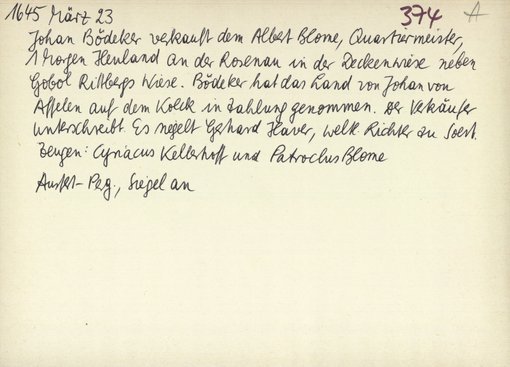 1645 März 23 374 A
Johan Bödeker verkauft dem Albert Blome, Quartiermeister,
1 Morgen Heuland an der Rosenau in der Deckenwiese neben
Gobol Ritbergs Wiese. Bödeker hat das Land von Johan von
Affelen auf dem Kolck in Zahlung genommen. Der Verkäufer
unterschreibt. Es siegelt Gerhard Haver, weltl. Richter zu Soest.
Zeugen: Cyriacus Kellerhoff und Patroclus Blome
Ausf.- Perg., Siegel an